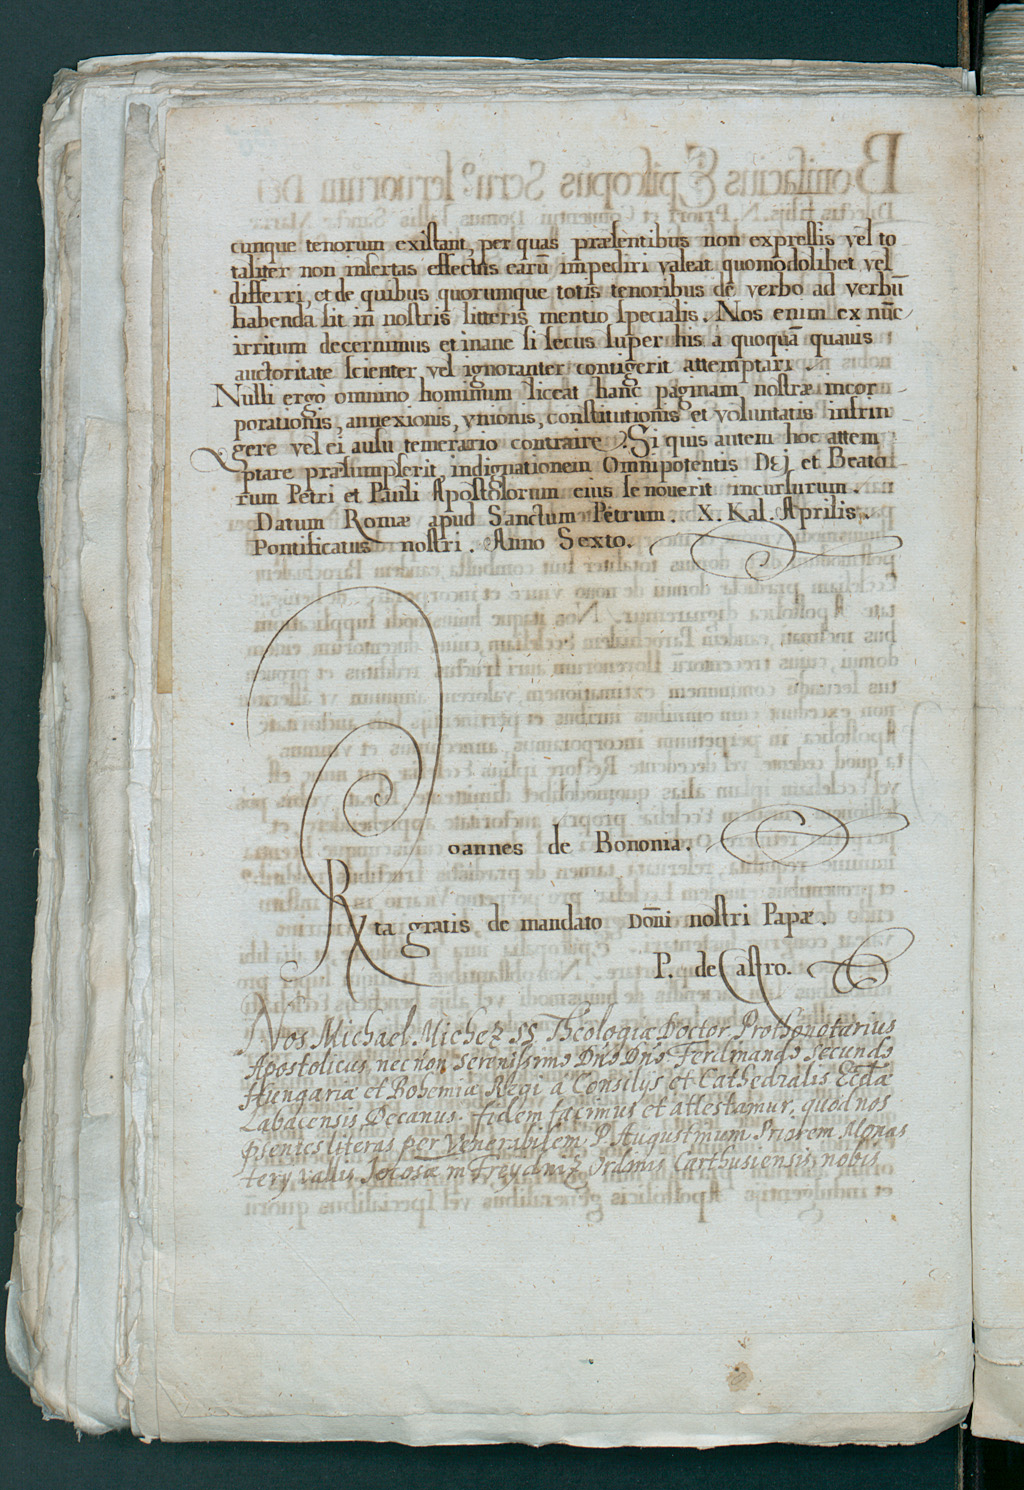 cunque tenorum existant, per quas præsentibus non expressis vel to
taliter non insertas effectus earū impediri valeat quomodolibet vel
differri, et de quibus quorumque totis tenoribus de verbo ad verbū
habenda sit in nostris litteris mentio specialis. Nos enim ex nūc
irritum decernimus et inane si secus super his a quoquā quauis
auctoritate scienter vel ignoranter contigerit attemptari.
Nulli ergo omnino hominum liceat hanc paginam nostræ incor
porationis, annexionis, vnionis, constitutionis et voluntatis infrin
gere vel ei ausu temerario contraire. Si quis autem hoc attem
ptare præsumpserit, indignationem Omnipotentis DEi et Beato
rum Petri et Pauli Apostolorum eius se nouerit incursurum.
Datum Romæ apud Sanctum Petrum. X. Kal. Aprilis.
Pontificatus nostri. Anno Sexto.
Joannes de Bononia.
Rta gratis de mandato Domi nostri Papæ.
P. de Castro.
Nos Michael Michez SS Theologiæ Doctor Prothonotarius
Apostolicus nec non Serenissimo Dno Dno Ferdinando Secundo
Hungariæ et Bohemiæ Regi a Consilijs et Cathedralis Eccłæ
Labacensis Decanus. fidem facimus et attestamur, quod nos
psentes literas per Venerabilem P. Augustinum Priorem Monas
terij vallis Jocosæ in Freydniz Ordinis Carthusiensis nobis